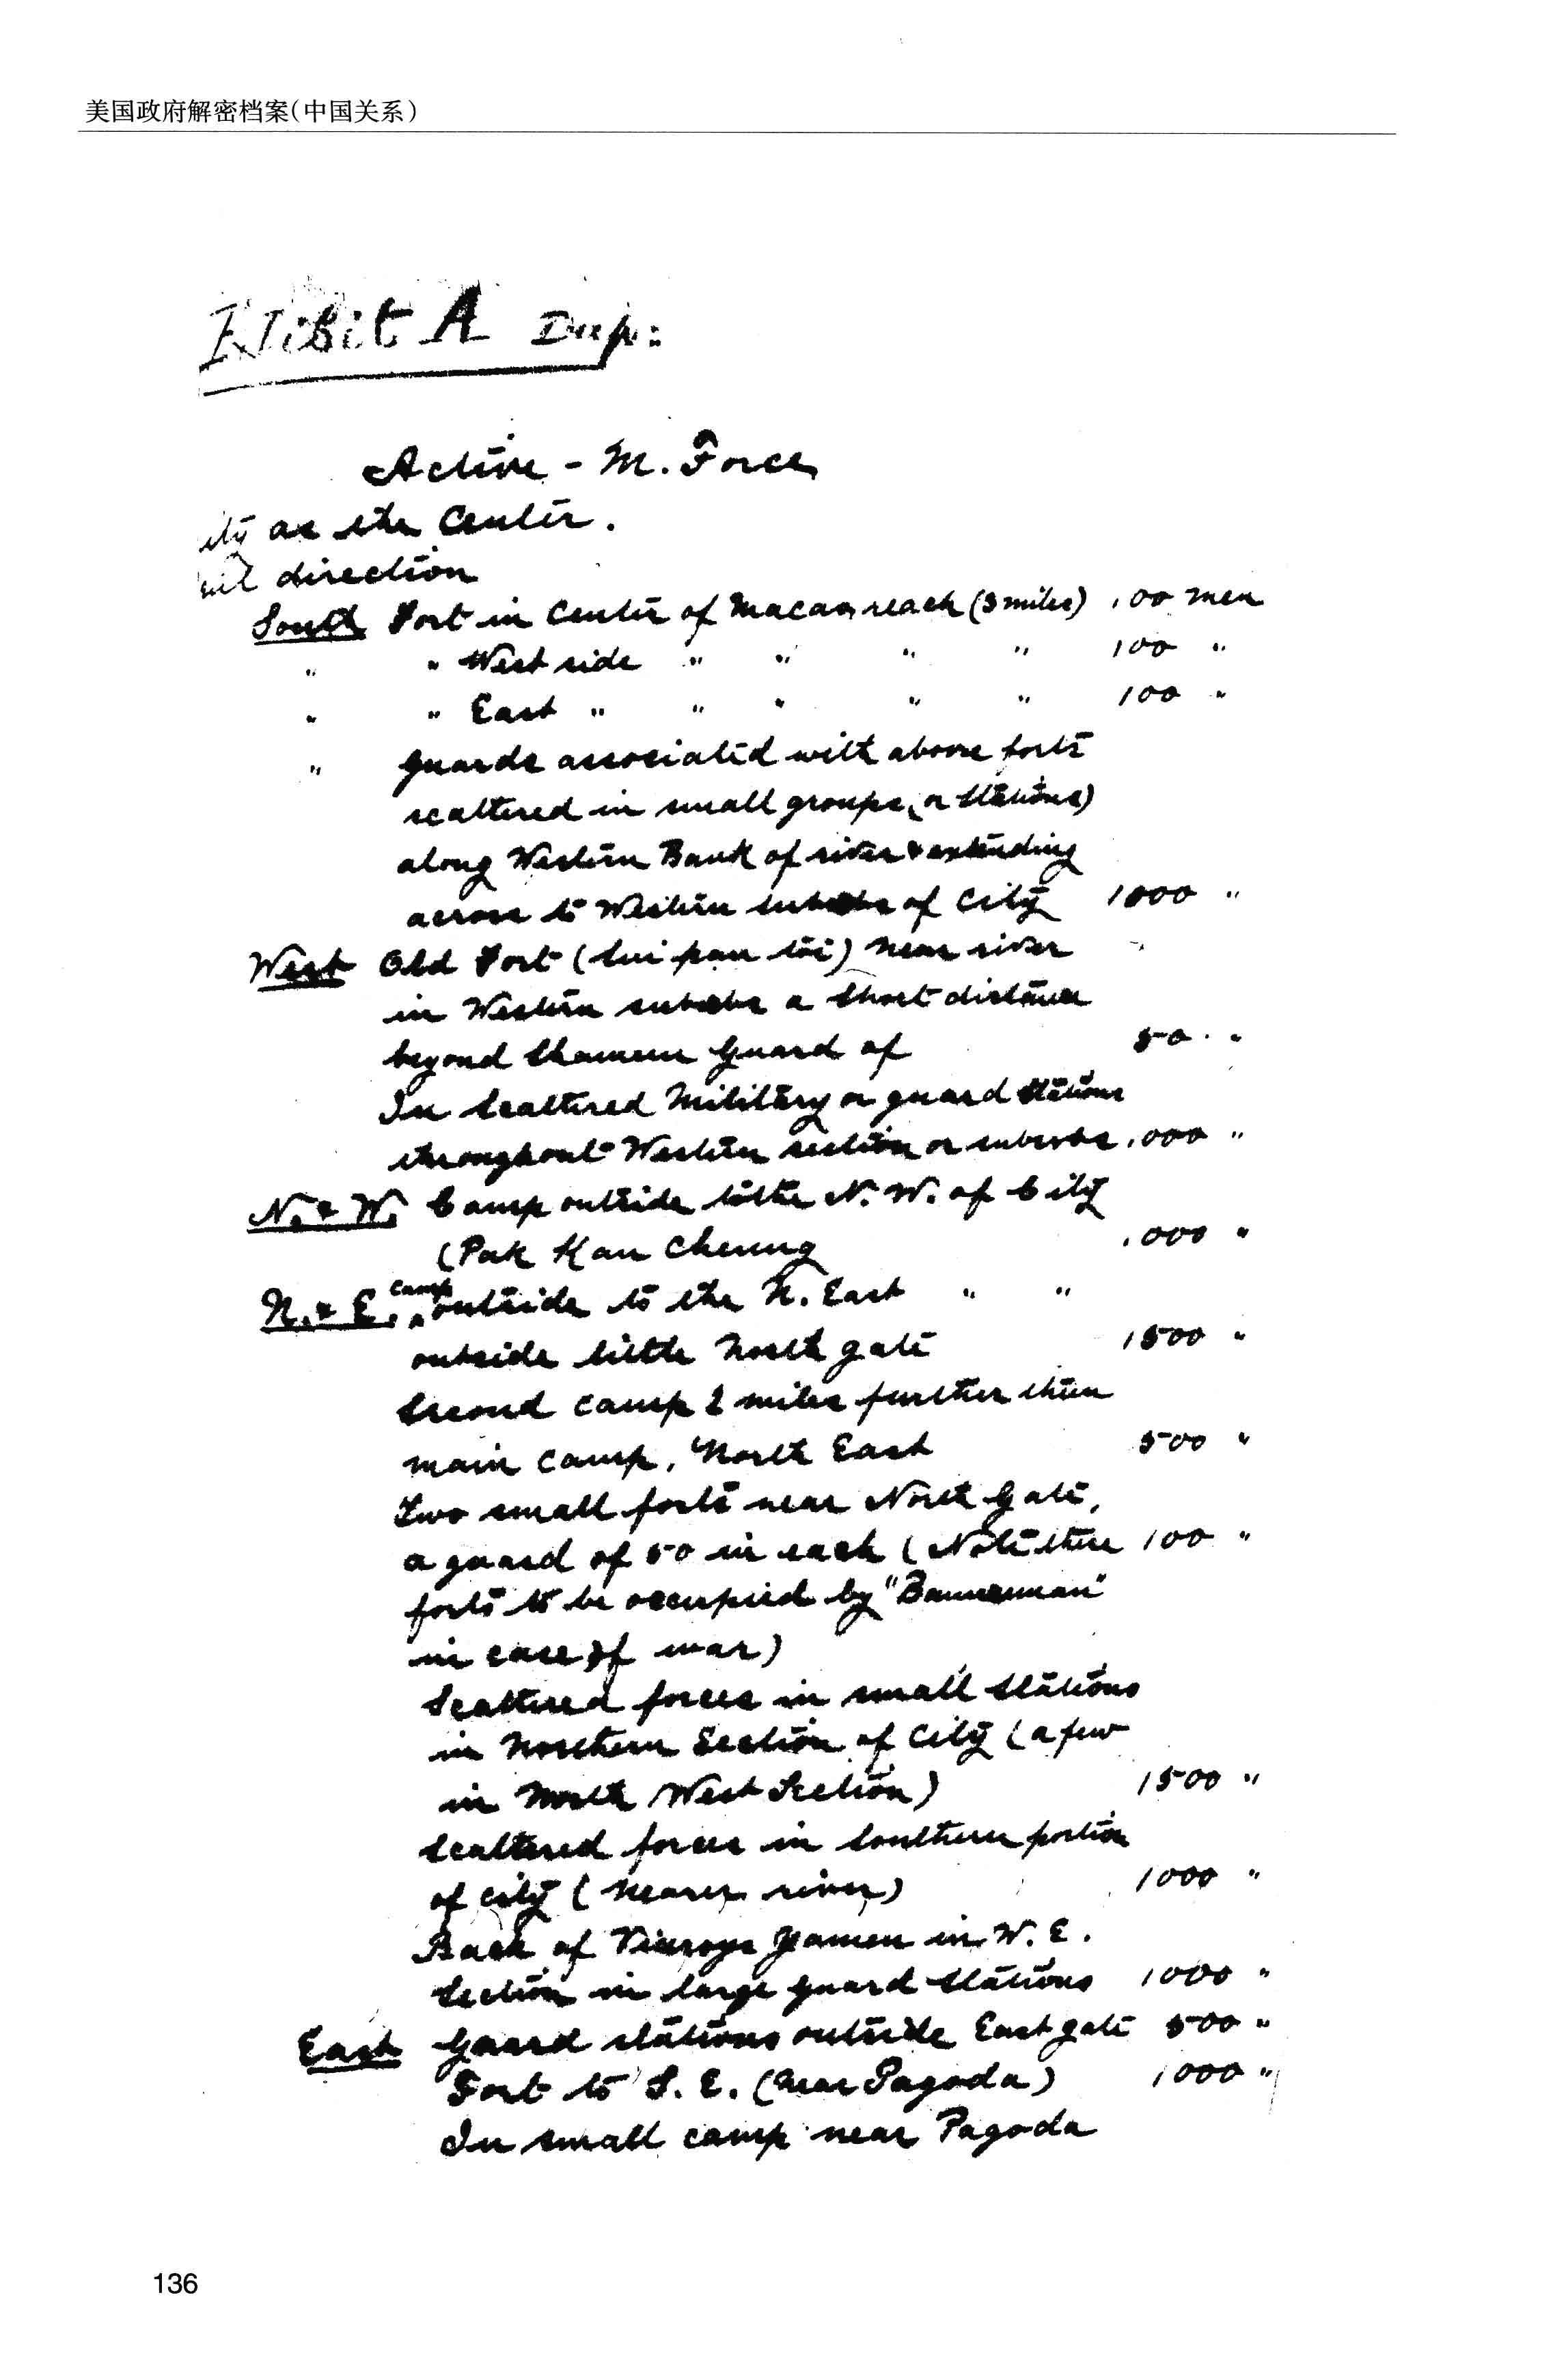 美国政府解密档案(中国关系)
Exibit A Dup:
Active - M. Force
ity as the Center.
direction
South Fort in Center of Macao reach (3 miles) 100 men
" " West side " " " " 100 "
" " East " " " " " 100 "
" Guards associated with above forts
scattered in small groups (or Stations)
along Western Bank of river & extending
across to Western suburbs of City 1000 "
West Old Fort (Sui pau toi) near river
in Western suburbs a short distance
beyond Shameen Guard of 50 "
In Scattered Military or guard Stations
throughout Western section or suburbs 1000 "
N. & W. Camp outside to the N. W. of City
(Pak Kau Cheung 1000 "
N. & E. Camp outside to the N. East " "
outside little North gate 1500 "
Second camp 2 miles further then
main camp, North East 500 "
Two small forts near North Gate,
a guard of 50 in each (Note these 100 "
forts to be occupied by "Bannerman"
in case of war)
Scattered forces in small Stations
in Northern Section of City (a few
in North West Section) 1500 "
Scattered forces in Southern portion
of city (nearer river) 1000 "
Back of Viceroys Yamen in N. E.
Section in large guard Stations 1000 "
East Guard stations outside East gate 500 "
Fort to S. E. (Near Pagoda) 1000 "
In small camp near Pagoda
136